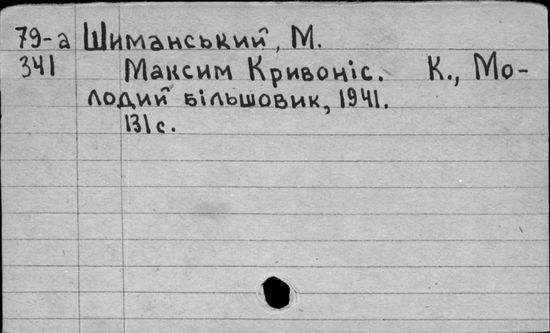 79-а Шиманський, М.
341 Максим Кривоніс. К., Мо-
лодий більшовик, 1941.
131 с.